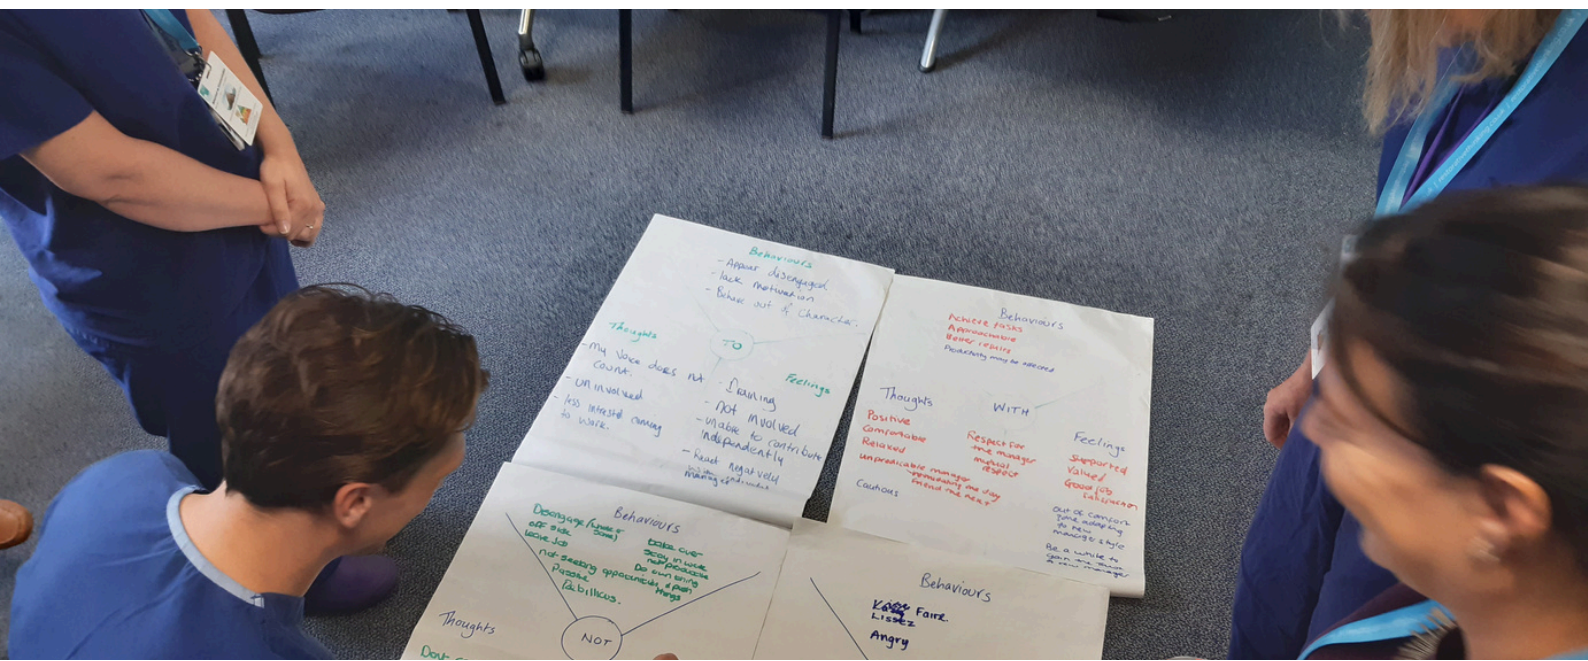 Behaviours
- Appear disengaged
- lack motivation
- Behave out of Character.
Thoughts
- My Voice does not
count.
- uninvolved
- less intrested coming
to work.
TO
Feelings
- Draining
- Not involved
- unable to contribute
independently
- React negatively
Behaviours
Achieve tasks
Approachable
Better results
Productivity may be affected
Thoughts
Positive
Comfortable
Relaxed
unpredicable manager
friend the next
Cautious
WITH
Respect for
the manager
mutual
respect
Feelings
Supported
Valued
Good job
out of comfort
zone adapting
to new
manager style
Be a while to
gain the
a new manager
Behaviours
Disengage
off sick
leave job
not seeking opportunities
Passive
take over
stay in work
not productive
Do own thing
things
NOT
Thoughts
Behaviours
Faire
Lissez
Angry